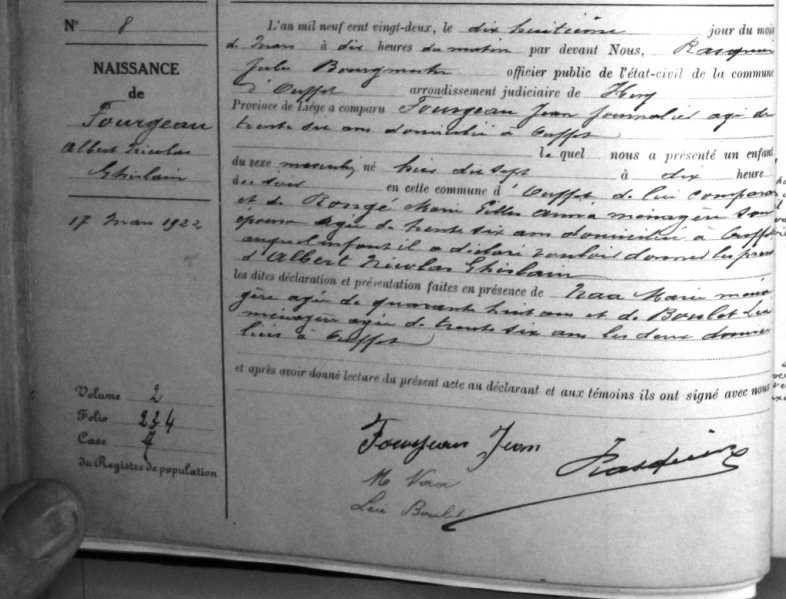 N° 8
NAISSANCE
de
Fourgeau
Albert Nicolas
Ghislain
17 Mars 1922
Volume 2
Folio 234
Case 4
du Registre de population
L'an mil neuf cent vingt-deux, le dix huitième jour du mois
de Mars à dix heures du matin par devant Nous, Rasquin
Jules Bourgmestre officier public de l'état-civil de la commune
d'Ouffet arrondissement judiciaire de Huy
Province de Liège a comparu Fourgeau Jean journalier agé de
trente six ans domicilié à Ouffet
le quel nous a présenté un enfant
du sexe masculin né hier dix sept à dix heure
du soir en cette commune d'Ouffet de lui comparant
et de Rongé Marie ménagère son
épouse agée de trente six ans domiciliée à Ouffet
auquel enfant il a déclaré vouloir donner les prénoms
d'Albert Nicolas Ghislain
les dites déclaration et présentation faites en présence de Marie ména
gère agée de quarante huit ans et de Boulet
ménagère agée de trente six ans les deux domici
liées à Ouffet
et après avoir donné lecture du présent acte au déclarant et aux témoins ils ont signé avec nous
Fourgeau Jean
Rasquin
M
Boulet